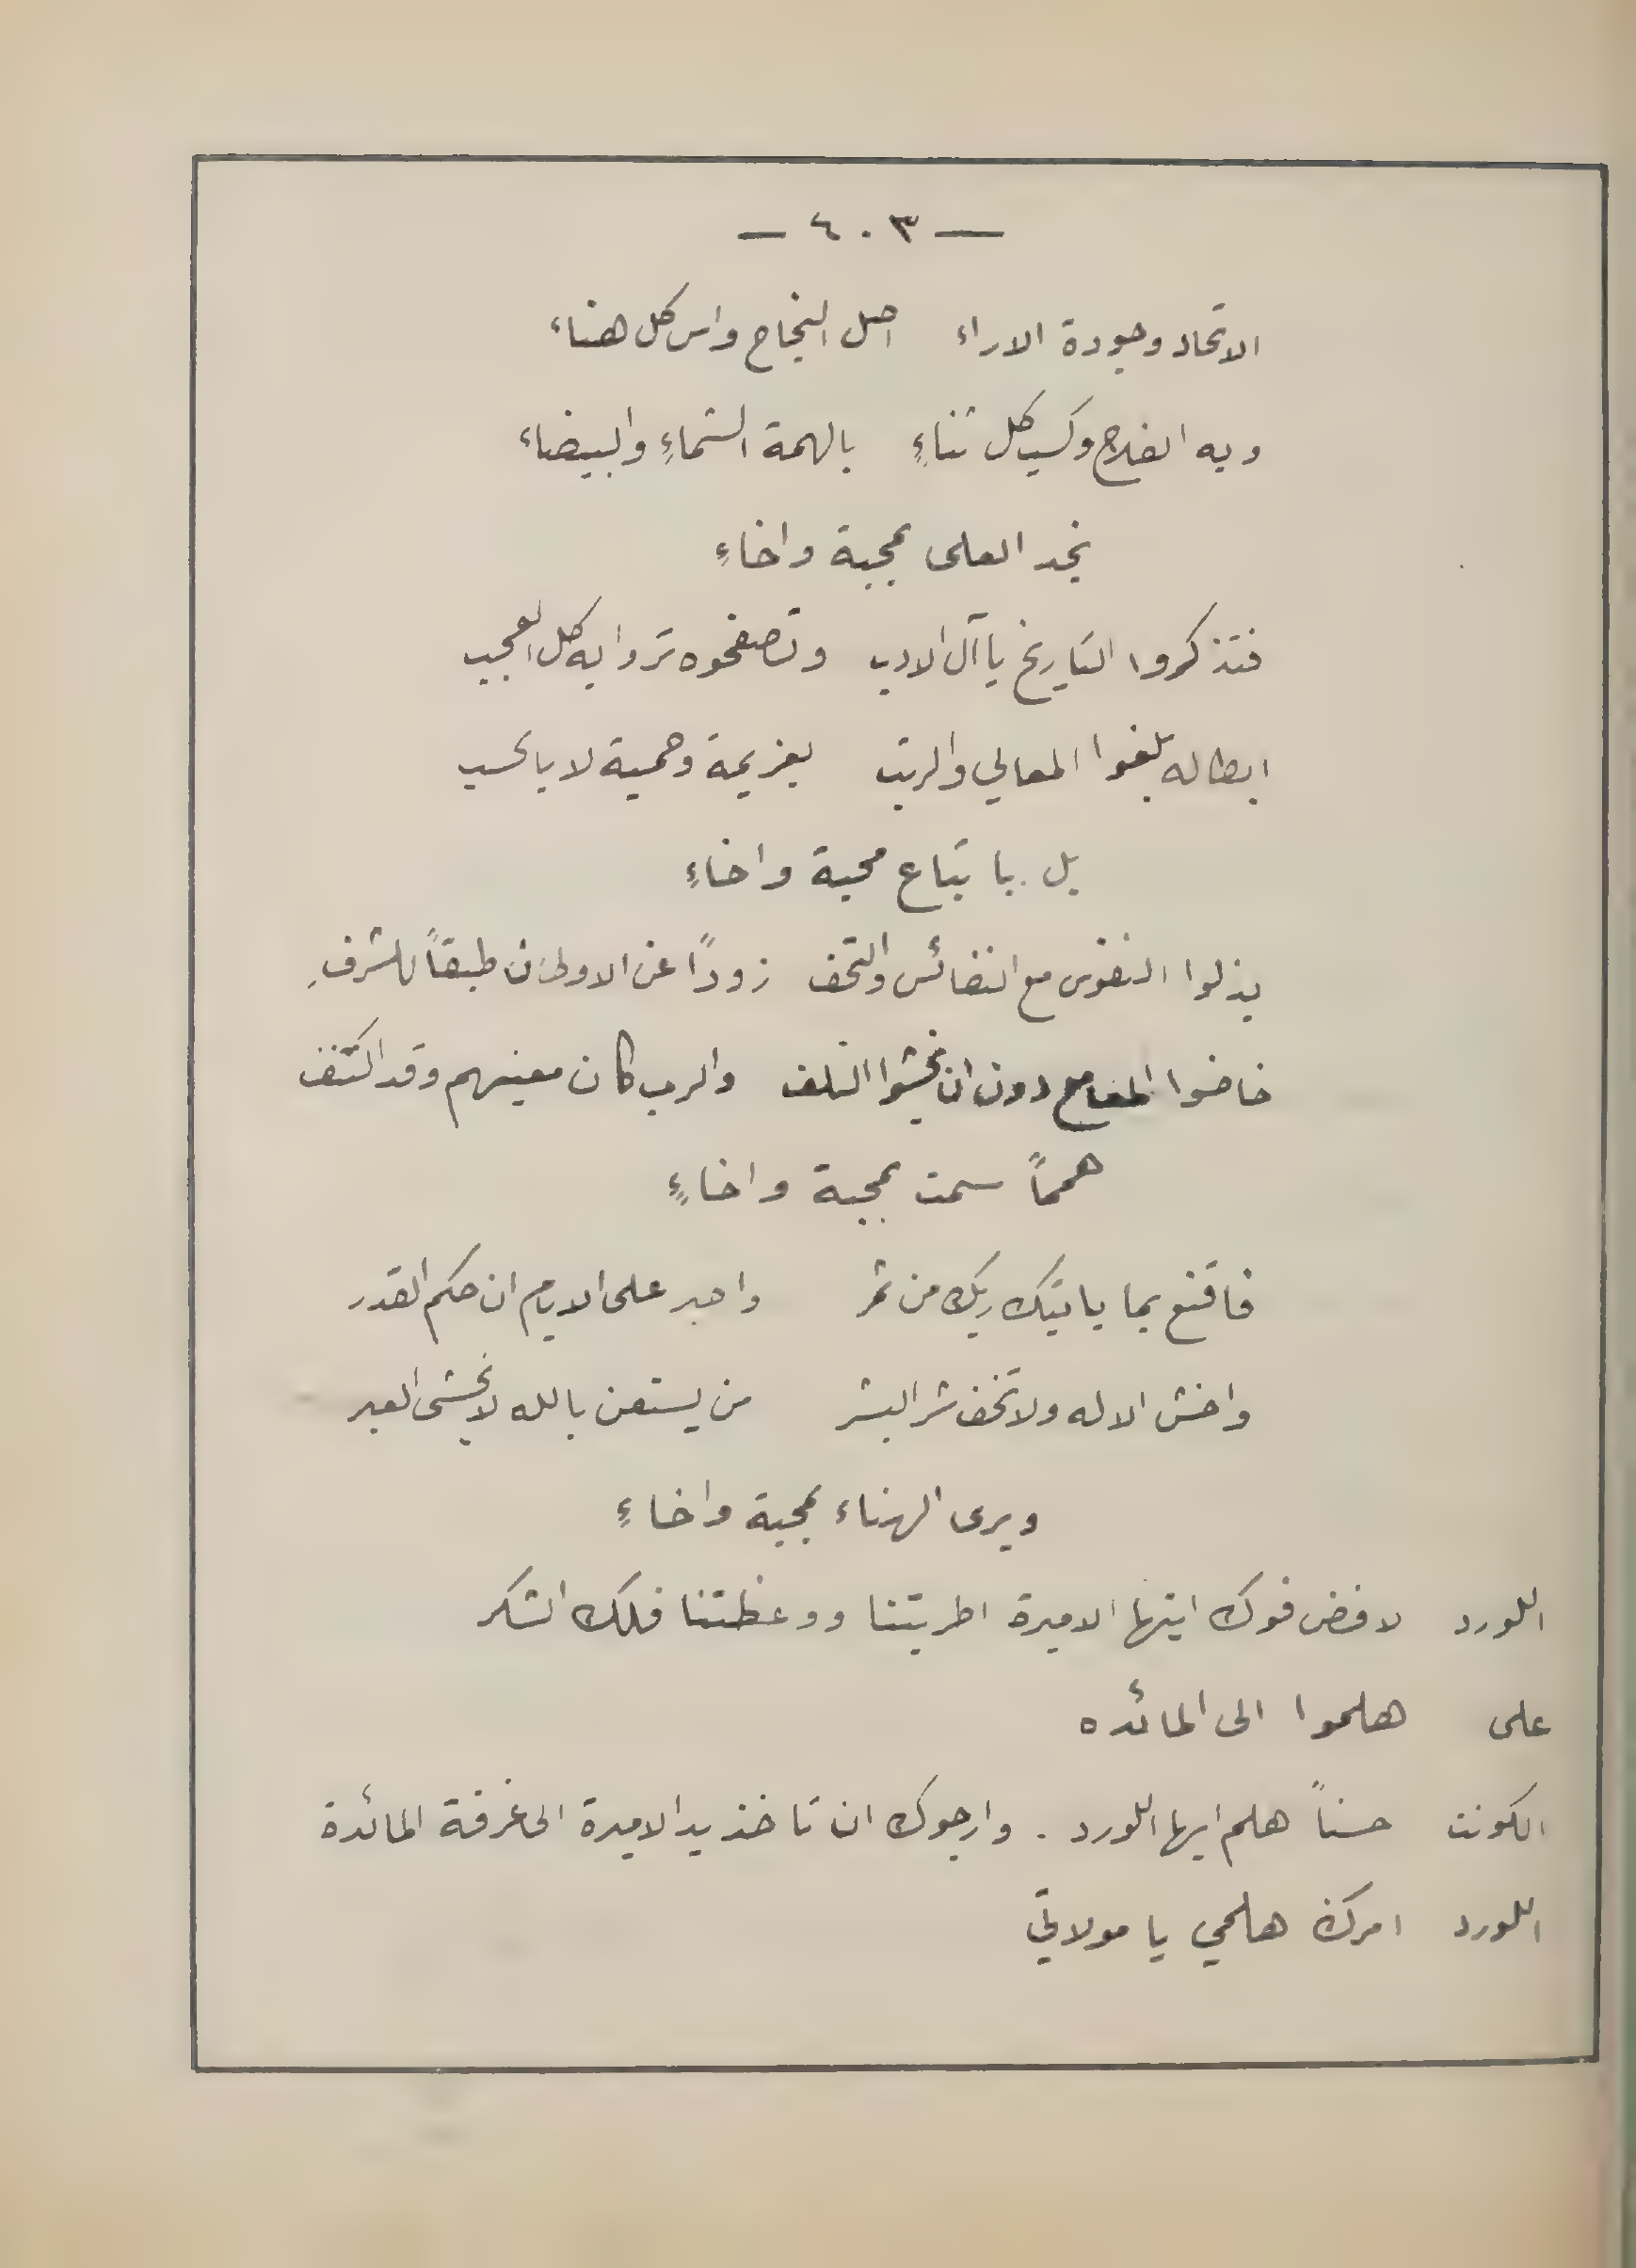 — ٤٠٣ —
الاتحاد وجودة الاراء اصل النجاح واس كل هناء
وبه الفلاح وكسب كل ثناءٍ بالهمة الشماءِ والبيضاء
نجد العلى بمحبة واخاءِ
فتذكروا التاريخ يا آل الادب وتصفحوه تروا به كل العجب
ابطاله بلغوا المعالي والرتب بعزيمة وحمية لا بالحسب
بل باتباع محبة واخاءِ
بذلوا النفوس مع النفائس والتحف زوداً عن الاوطان طبقاً للشرفِ
خاضوا المعامع دون ان يخشوا التلف والرب كان معينهم وقد اكتنف
همماً سمت بمحبة واخاءٍ
فاقنع بما ياتيك ربك من ثمر واصبر على الايام ان حكم القدر
واخش الاله ولا تخف شر البشر من يستعن بالله لا يخشى العبر
ويرى الهناء بمحبة واخاءِ
اللورد لا فض فوك ايتها الاميرة اطربتنا ووعظتنا فلك الشكر
على هلموا الى المائده
الكونت حسناً هلم ايها اللورد . وارجوك ان تاخذ بيد الاميرة الى غرفة المائدة
اللورد امرك هلمي يا مولاتي